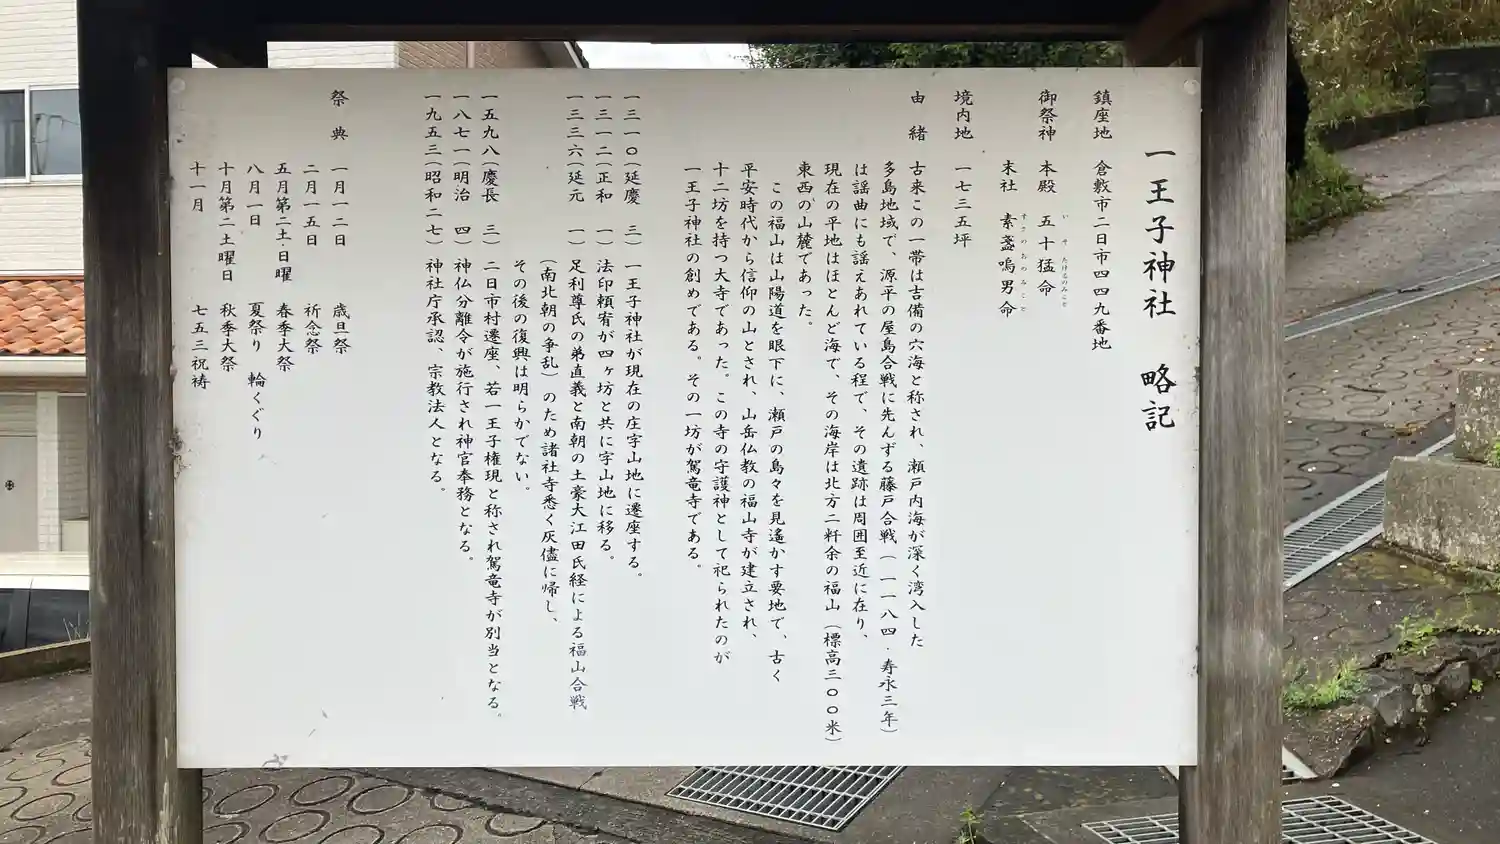 一王子神社 略記
鎮座地 倉敷市二日市四四九番地
御祭神 本殿 五十猛命
い そ たけるのみこと
末社 素盞嗚男命
すさのおのみこと
境内地 一七三五坪
由緒 古来この一帯は吉備の穴海と称され、瀬戸内海が深く湾入した
多島地域で、源平の屋島合戦に先んずる藤戸合戦(一一八四・寿永三年)
は謡曲にも謡えあれている程で、その遺跡は周囲至近に在り、
現在の平地はほとんど海で、その海岸は北方二粁余の福山(標高三〇〇米)
東西の山麓であった。
この福山は山陽道を眼下に、瀬戸の島々を見遙かす要地で、古く
平安時代から信仰の山とされ、山岳仏教の福山寺が建立され、
十二坊を持つ大寺であった。この寺の守護神として祀られたのが
一王子神社の創めである。その一坊が駕竜寺である。
一三一〇(延慶 三)一王子神社が現在の庄字山地に遷座する。
一三一二(正和 一)法印頼宥が四ヶ坊と共に字山地に移る。
一三三六(延元 一)足利尊氏の弟直義と南朝の土豪大江田氏経による福山合戦
(南北朝の争乱)のため諸社寺悉く灰儘に帰し、
その後の復興は明らかでない。
一五九八(慶長 三)二日市村遷座、若一王子権現と称され駕竜寺が別当となる。
一八七一(明治 四)神仏分離令が施行され神官奉務となる。
一九五三(昭和二七)神社庁承認、宗教法人となる。
祭典 一月一二日 歳旦祭
二月一五日 祈念祭
五月第二土・日曜 春季大祭
八月一日 夏祭り 輪くぐり
十月第二土曜日 秋季大祭
十一月 七五三祝祷